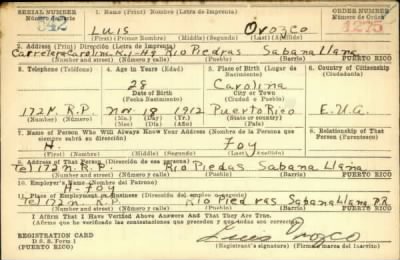 SERIAL NUMBER 1. Name (Print) Nombre (Letra de Imprenta) ORDER NUMBER
Número de Serie Número de Orden
342 LUIS Orozco 4275
(First) (Primer Nombre) (Middle) (Segundo Nombre) (Last) (Apellido)
2. Address (Print) Dirección (Letra de Imprenta)
Carretera Carolina K.4-H.9 Rio Piedras Sabana Llana
(Number and Street) (Número y Calle) (Town) (Pueblo) PUERTO RICO
3. Telephone (Teléfono) 4. Age in Years (Edad) 5. Place of Birth (Lugar de Nacimiento) 6. Country of Citizenship (Ciudadanía)
28 Carolina
Date of Birth (Town or City)
(Fecha Nacimiento) (Ciudad o Pueblo)
172 N. R.P. Nov 19 1912 Puerto Rico E.U.A.
(Number) (Número) (Mo.) (Mes) (Day) (Día) (Yr.) (Año) (State or country) (Country) (País)
7. Name of Person Who Will Always Know Your Address (Nombre de la Persona que siempre sabrá su dirección) 8. Relationship of That Person (Parentesco)
H. Foy
9. Address of That Person (Dirección de esa persona)
Tel 172 N. R.P. Rio Piedas Sabana Llana
(Number and Street) (Número y Calle) (Town) (Pueblo) PUERTO RICO
10. Employer's Name (Nombre del Patrono)
H. Foy
11. Place of Employment or Business (Dirección del empleo o negocio)
Tel 172 n. R.P. Rio Piedras Sabana Llana PR
(Number and Street) (Número y Calle) (Town) (Pueblo) PUERTO RICO
I Affirm That I Have Verified Above Answers and That They Are True.
(Afirmo que he verificado las contestaciones que preceden y que todas son correctas)
REGISTRATION CARD Luis Orozco
D. S. S. Form 1
(PUERTO RICO) (Registrant's signature) (Firma o marca del Inscrito)